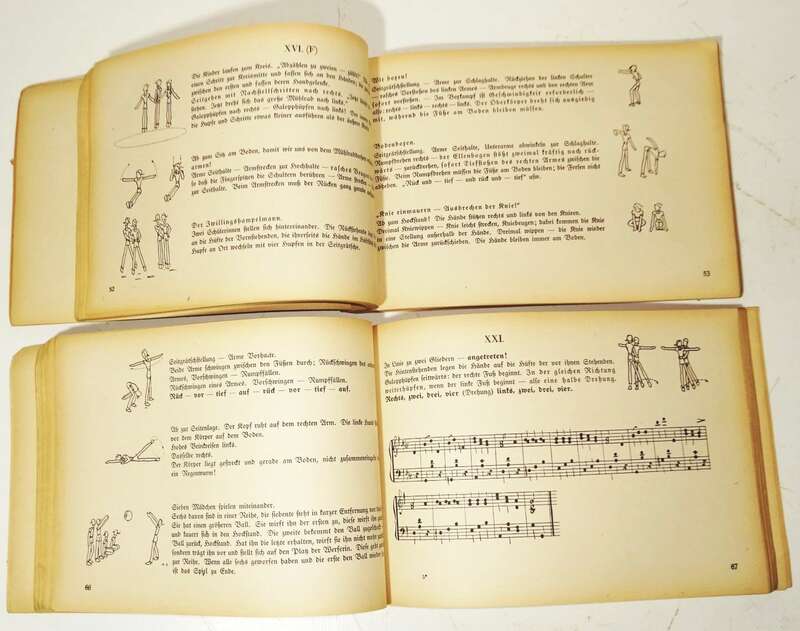 XVI. (F)
Die Kinder laufen zum Kreis. „Abzählen zu zweien —
einen Schritt zur Kreismitte und fassen sich an den Händen, die
zwischen den ersten und fassen deren Handgelenke.
Seitgehen mit Nachstellschritten nach rechts. „Jetzt
liegen. Jetzt dreht sich das große Mühlrad nach links."
Galopphüpfen nach rechts — Galopphüpfen nach links!
die Hupfe und Schritte etwas kleiner ausführen als der äußere
Ab zum Sitz am Boden, damit wir uns von dem Mühlradfahren
armen!
Arme Seithalte — Armstrecken zur Hochhalte — rasches Beugen
so daß die Fingerspitzen die Schultern berühren — Arme strecken
zur Seithalte. Beim Armstrecken muß der Rücken ganz gerade
Der Zwillingshampelmann.
Zwei Schülerinnen stellen sich hintereinander. Die Rückstehende
an die Hüfte der Vornstehenden, die ihrerseits die Hände im
Hupfe an Ort wechseln mit vier Hupfen in der Seitgrätsche.
52
Wir boxen!
Seitgrätschstellung — Arme zur Schlaghalte. Rückziehen der linken Schulter
— rasches Vorstoßen des linken Armes — Armbeuge rechts und den rechten Arm
sofort vorstoßen. — Im Boxkampf ist Geschwindigkeit erforderlich —
also: rechts — links — rechts — links. Der Oberkörper dreht sich ausgiebig
mit, während die Füße am Boden bleiben müssen.
Bodenboxen.
Seitgrätschstellung. Arme Seithalte, Unterarme abwinkeln zur Schlaghalte.
Rumpfdrehen rechts — der Ellenbogen stößt zweimal kräftig nach rück-
wärts — zurückdrehen, sofort Tiefstoßen des rechten Armes zwischen die
Füße. Beim Rumpfdrehen müssen die Füße am Boden bleiben; die Fersen nicht
abheben. „Rück und — tief — und rück und — tief" usw.
„Knie einmauern — Ausbrechen der Knie!"
Ab zum Hockstand! Die Hände stützen rechts und links von den Knieen.
Dreimal Kniewippen — Knie leicht strecken, Kniebeugen; dabei kommen die Knie
in eine Stellung außerhalb der Hände. Dreimal wippen — die Knie wieder
zwischen die Arme zurückschieben. Die Hände bleiben immer am Boden.
53
Seitgrätschstellung — Arme Vorhalte.
Beide Arme schwingen zwischen den Füßen durch; Rückschwingen des einen
Armes, Vorschwingen — Rumpffällen.
Rückschwingen eines Armes. Vorschwingen — Rumpffällen.
Rück — vor — tief — auf — rück — vor — tief — auf.
Ab zur Seitenlage. Der Kopf ruht auf dem rechten Arm. Die linke Hand
vor dem Körper auf dem Boden.
Hohes Beinkreisen links.
Dasselbe rechts.
Der Körper liegt gestreckt und gerade am Boden, nicht zusammengeringelt
ein Regenwurm!
Sieben Mädchen spielen miteinander.
Sechs davon sind in einer Reihe, die siebente steht in kurzer Entfernung vor
Sie hat einen größeren Ball. Sie wirft ihn der ersten zu, diese wirft ihn
und kauert sich in den Hockstand. Die zweite bekommt den Ball zugeschickt
Ball zurück, Hockstand. Hat ihn die letzte erhalten, wirft sie ihn nicht mehr
sondern trägt ihn vor und stellt sich auf den Platz der Werferin. Diese geht
zur Reihe. Wenn alle sechs geworfen haben und die erste den Ball wieder
ist das Spiel zu Ende.
66
XXI.
In Linie zu zwei Gliedern — angetreten!
Die Hintenstehenden legen die Hände auf die Hüfte der vor ihnen Stehenden.
Galopphüpfen seitwärts: der rechte Fuß beginnt. In der gleichen Richtung
weiterhüpfen, wenn der linke Fuß beginnt — also eine halbe Drehung.
Rechts, zwei, drei, vier (Drehung) links, zwei, drei, vier.
5*
67